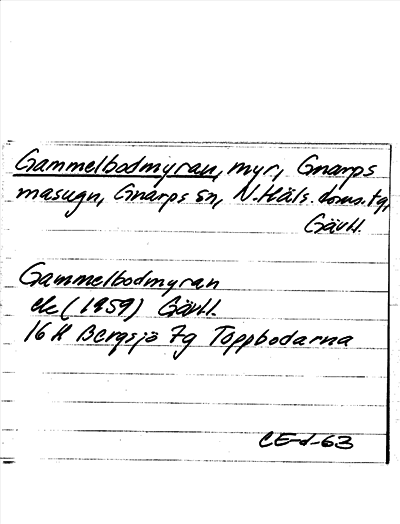 Gammelbodmyran, myr, Gnarps
masugn, Gnarps sn, N.Häls. doms.tg,
Gävl.
Gammelbodmyran
ek (1959) Gävl.
16 H Bergsjö 7g Toppbodarna
CE-d-63